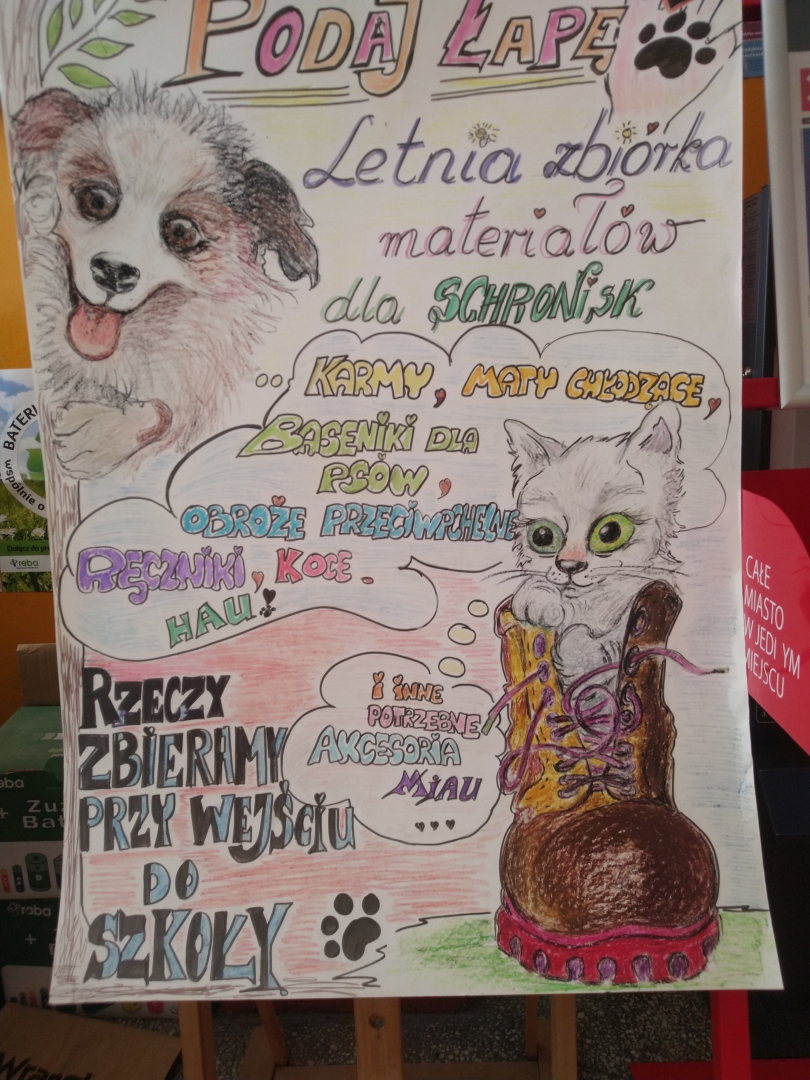 PODAJ ŁAPĘ
Letnia zbiórka
materiałów
dla SCHRONISK
KARMY, MATY CHŁODZĄCE,
BASENIKI DLA
PSÓW,
OBROŻE PRZECIWPCHELNE
RĘCZNIKI, KOCE.
HAU!
I INNE
POTRZEBNE
AKCESORIA
MIAU
...
RZECZY
ZBIERAMY
PRZY WEJŚCIU
DO
SZKOŁY
BATERI
wspólnie o
Dołącz do
reba
CAŁE
MIASTO
W JEDNYM
MIEJSCU
eba
+ Zu
Bat
reba
+
Wran